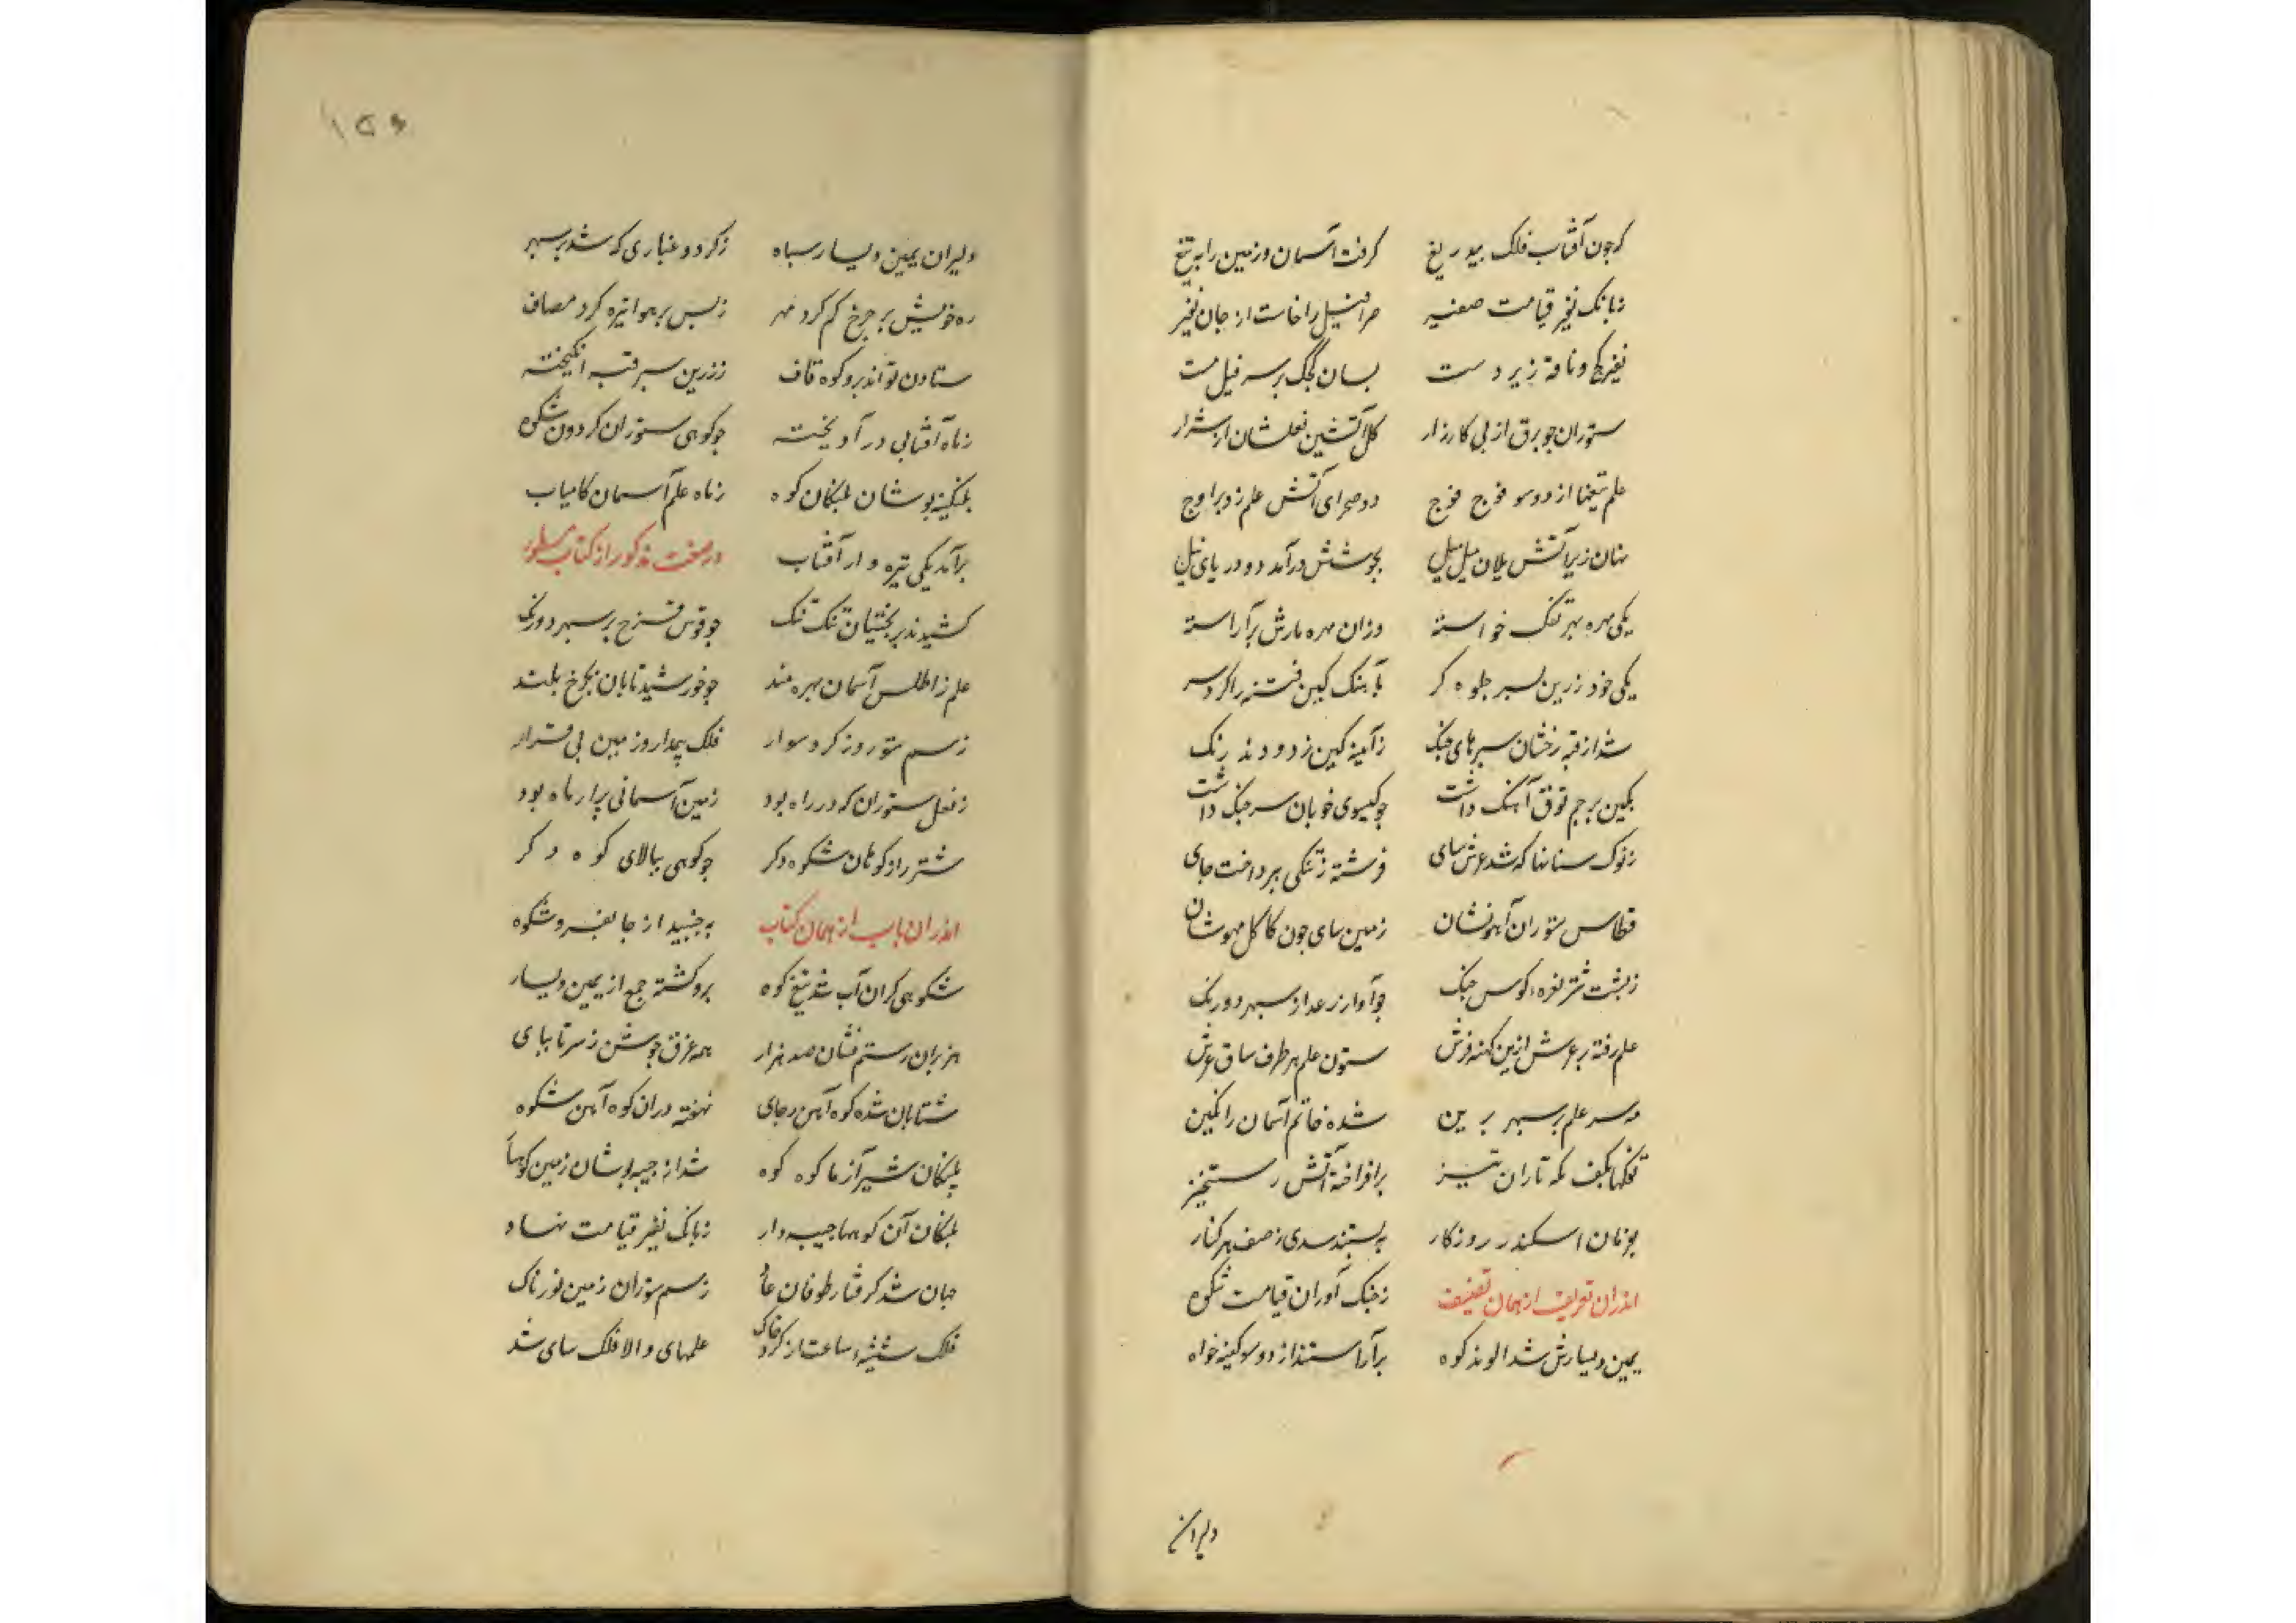 که چون آفتاب فلک بیدریغ گرفت آسمان و زمین را به تیغ
زبانک نفیر قیامت صفیر سرافیل را خاست از جان نفیر
نفیر کج و ناقه زیر دست بسان کجک بر سر فیل مست
ستوران چو برق از پی کارزار کل آتشین نعلشان از شرار
علم تیغها از دو سو فوج فوج دو صحرای آتش علم زد بر اوج
نهان زیر آتش یلان میل میل بجوشش درآمد دو دریای نیل
یکی مهره بهر تفک خواسته وزان مهره مارش برآراسته
یکی خود زرین بسر جلوه کر بآهنک کین فتنه را کرده سر
شد از قبه رخشان سپرهای جنک ز آیینه کین زدودند زنک
بکین پرچم توق آهنک داشت چو کیسوی خوبان سر جنک داشت
زنوک سنانها که شد عرش سای فرشته ز تنکی بپرداخت جای
قطاس ستوران آهو نشان زمین سای چون کاکل مهوشان
زپشت شتر نعره کوس جنک چو آواز رعد از سپهر دورنک
علم رفته بر عرش ازین کهنه فرش ستون علم هر طرف ساق عرش
مه سر علم بر سپهر برین شده خاتم آسمان را نکین
تفکها بکف یکه تازان تیز برافراخته آتش رستخیز
بفرمان اسکندر روزکار ببستند سدی ز صف هر کنار
اندران تعریف از همان تصنیف ز جنک آوران قیامت شکوه
یمین و یسارش شد الوند کوه برآراستند از دو سو کینه خواه
دلیران
۱۵۶
دلیران یمین و یسار سپاه ز کرد و غباری که شد بر سپهر
ره خویش بر چرخ کم کرد مهر ز بس بر هوا تیره کرد مصاف
ستادن تواند برو کوه قاف ز زرین سپر قبه انکیخته
ز ماه آفتابی در آویخته چو کوهی ستوران کردون شکوه
پلنکینه پوشان پلنکان کوه ز ماه علم آسمان کامیاب
برآمد یکی تیره وار آفتاب در صفت مذکور از کتاب مسطور
کشیدند بر بختیان تنک تنک چو قوس قزح بر سپهر دورنک
علم ز اطلس آسمان بهره مند چو خورشید تابان بچرخ بلند
ز سم ستور و ز کرد سوار فلک پیدار و زمین بی قرار
ز نعل ستوران که در راه بود زمین آسمانی پر از ماه بود
شتر را ز کوهان شکوه دکر چو کوهی ببالای کوه دکر
اندران باب از همان کتاب بجنبید از جا بفر و شکوه
شکوهی کزان آب شد تیغ کوه برو کشته جمع از یمین و یسار
هزبران رستم نشان صد هزار همه غرق جوشن ز سر تا بپای
شتابان شده کوه آهن ز جای نهفته دران کوه آهن شکوه
پلنکان شیر آزما کوه کوه شد از جیبه پوشان زمین کوهسار
پلنکان آن کوهها جیبه دار ز بانک نفیر قیامت نهاد
جهان شد کرفتار طوفان عاد ز سم ستوران زمین لوزناک
فلک شیشه ساعت از کرد خاک علمهای والا فلک سای شد